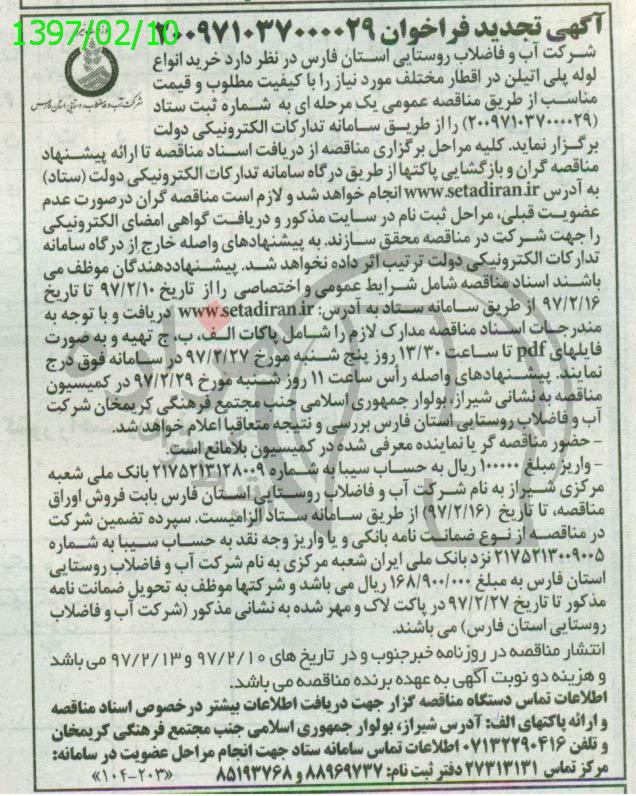 1397/02/10
آگهی تجدید فراخوان ۲۰۰۹۷۱۰۳۷۰۰۰۰۲۹
شرکت آب و فاضلاب روستایی استان فارس در نظر دارد خرید انواع
لوله پلی اتیلن در اقطار مختلف مورد نیاز را با کیفیت مطلوب و قیمت
شرکت آب و فاضلاب روستایی استان فارس
مناسب از طریق مناقصه عمومی یک مرحله ای به شماره ثبت ستاد
(۲۰۰۹۷۱۰۳۷۰۰۰۰۲۹) را از طریق سامانه تدارکات الکترونیکی دولت
برگزار نماید. کلیه مراحل برگزاری مناقصه از دریافت اسناد مناقصه تا ارائه پیشنهاد
مناقصه گران و بازگشایی پاکتها از طریق درگاه سامانه تدارکات الکترونیکی دولت (ستاد)
به آدرس www.setadiran.ir انجام خواهد شد و لازم است مناقصه گران درصورت عدم
عضویت قبلی، مراحل ثبت نام در سایت مذکور و دریافت گواهی امضای الکترونیکی
را جهت شرکت در مناقصه محقق سازند. به پیشنهادهای واصله خارج از درگاه سامانه
تدارکات الکترونیکی دولت ترتیب اثر داده نخواهد شد. پیشنهاددهندگان موظف می
باشند اسناد مناقصه شامل شرایط عمومی و اختصاصی را از تاریخ ۹۷/۲/۱۰ تا تاریخ
۹۷/۲/۱۶ از طریق سامانه ستاد به آدرس: www.setadiran.ir دریافت و با توجه به
مندرجات اسناد مناقصه مدارک لازم را شامل پاکات الف، ب، ج تهیه و به صورت
فایلهای pdf تا ساعت ۱۳/۳۰ روز پنج شنبه مورخ ۹۷/۲/۲۷ در سامانه فوق درج
نمایند. پیشنهادهای واصله رأس ساعت ۱۱ روز شنبه مورخ ۹۷/۲/۲۹ در کمیسیون
مناقصه به نشانی شیراز، بولوار جمهوری اسلامی جنب مجتمع فرهنگی کریمخان شرکت
آب و فاضلاب روستایی استان فارس بررسی و نتیجه متعاقبا اعلام خواهد شد.
- حضور مناقصه گر یا نماینده معرفی شده در کمیسیون بلامانع است.
- واریز مبلغ ۱۰۰۰۰۰ ریال به حساب سیبا به شماره ۲۱۷۵۲۱۳۱۲۸۰۰۹ بانک ملی شعبه
مرکزی شیراز به نام شرکت آب و فاضلاب روستایی استان فارس بابت فروش اوراق
مناقصه، تا تاریخ (۹۷/۲/۱۶) از طریق سامانه ستاد الزامیست. سپرده تضمین شرکت
در مناقصه از نوع ضمانت نامه بانکی و یا واریز وجه نقد به حساب سیبا به شماره
۲۱۷۵۲۱۳۰۰۹۰۰۵ نزد بانک ملی ایران شعبه مرکزی به نام شرکت آب و فاضلاب روستایی
استان فارس به مبلغ ۱۶۸/۹۰۰/۰۰۰ ریال می باشد و شرکتها موظف به تحویل ضمانت نامه
مذکور تا تاریخ ۹۷/۲/۲۷ در پاکت لاک و مهر شده به نشانی مذکور (شرکت آب و فاضلاب
روستایی استان فارس) می باشند.
انتشار مناقصه در روزنامه خبرجنوب و در تاریخ های ۹۷/۲/۱۰ و ۹۷/۲/۱۳ می باشد
و هزینه دو نوبت آگهی به عهده برنده مناقصه می باشد.
اطلاعات تماس دستگاه مناقصه گزار جهت دریافت اطلاعات بیشتر در خصوص اسناد مناقصه
و ارائه پاکتهای الف: آدرس شیراز، بولوار جمهوری اسلامی جنب مجتمع فرهنگی کریمخان
و تلفن ۰۷۱۳۲۲۹۰۴۱۶ اطلاعات تماس سامانه ستاد جهت انجام مراحل عضویت در سامانه:
مرکز تماس ۲۷۳۱۳۱۳۱ دفتر ثبت نام: ۸۸۹۶۹۷۳۷ و ۸۵۱۹۳۷۶۸ «۱۰۴-۲۰۳»